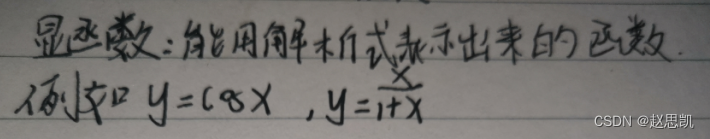 显函数:能用解析式表示出来的函数.
例如 y=cosx , y=x/(1+x)
CSDN @赵思凯